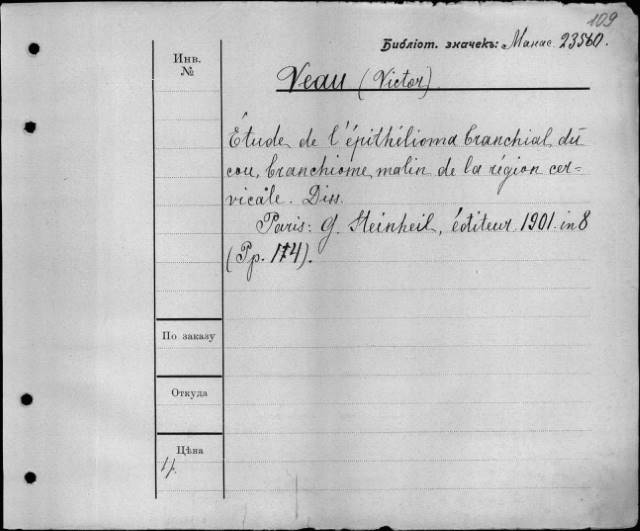 109
Библіот. значекъ: Манас. 23580.
Инв.
№
Veau (Victor).
Étude de l'épithélioma branchial du
cou, branchiome malin de la région cer=
vicale. Diss.
Paris: G. Steinheil, éditeur 1901. in 8
(Pp. 174).
По заказу
Откуда
Цѣна